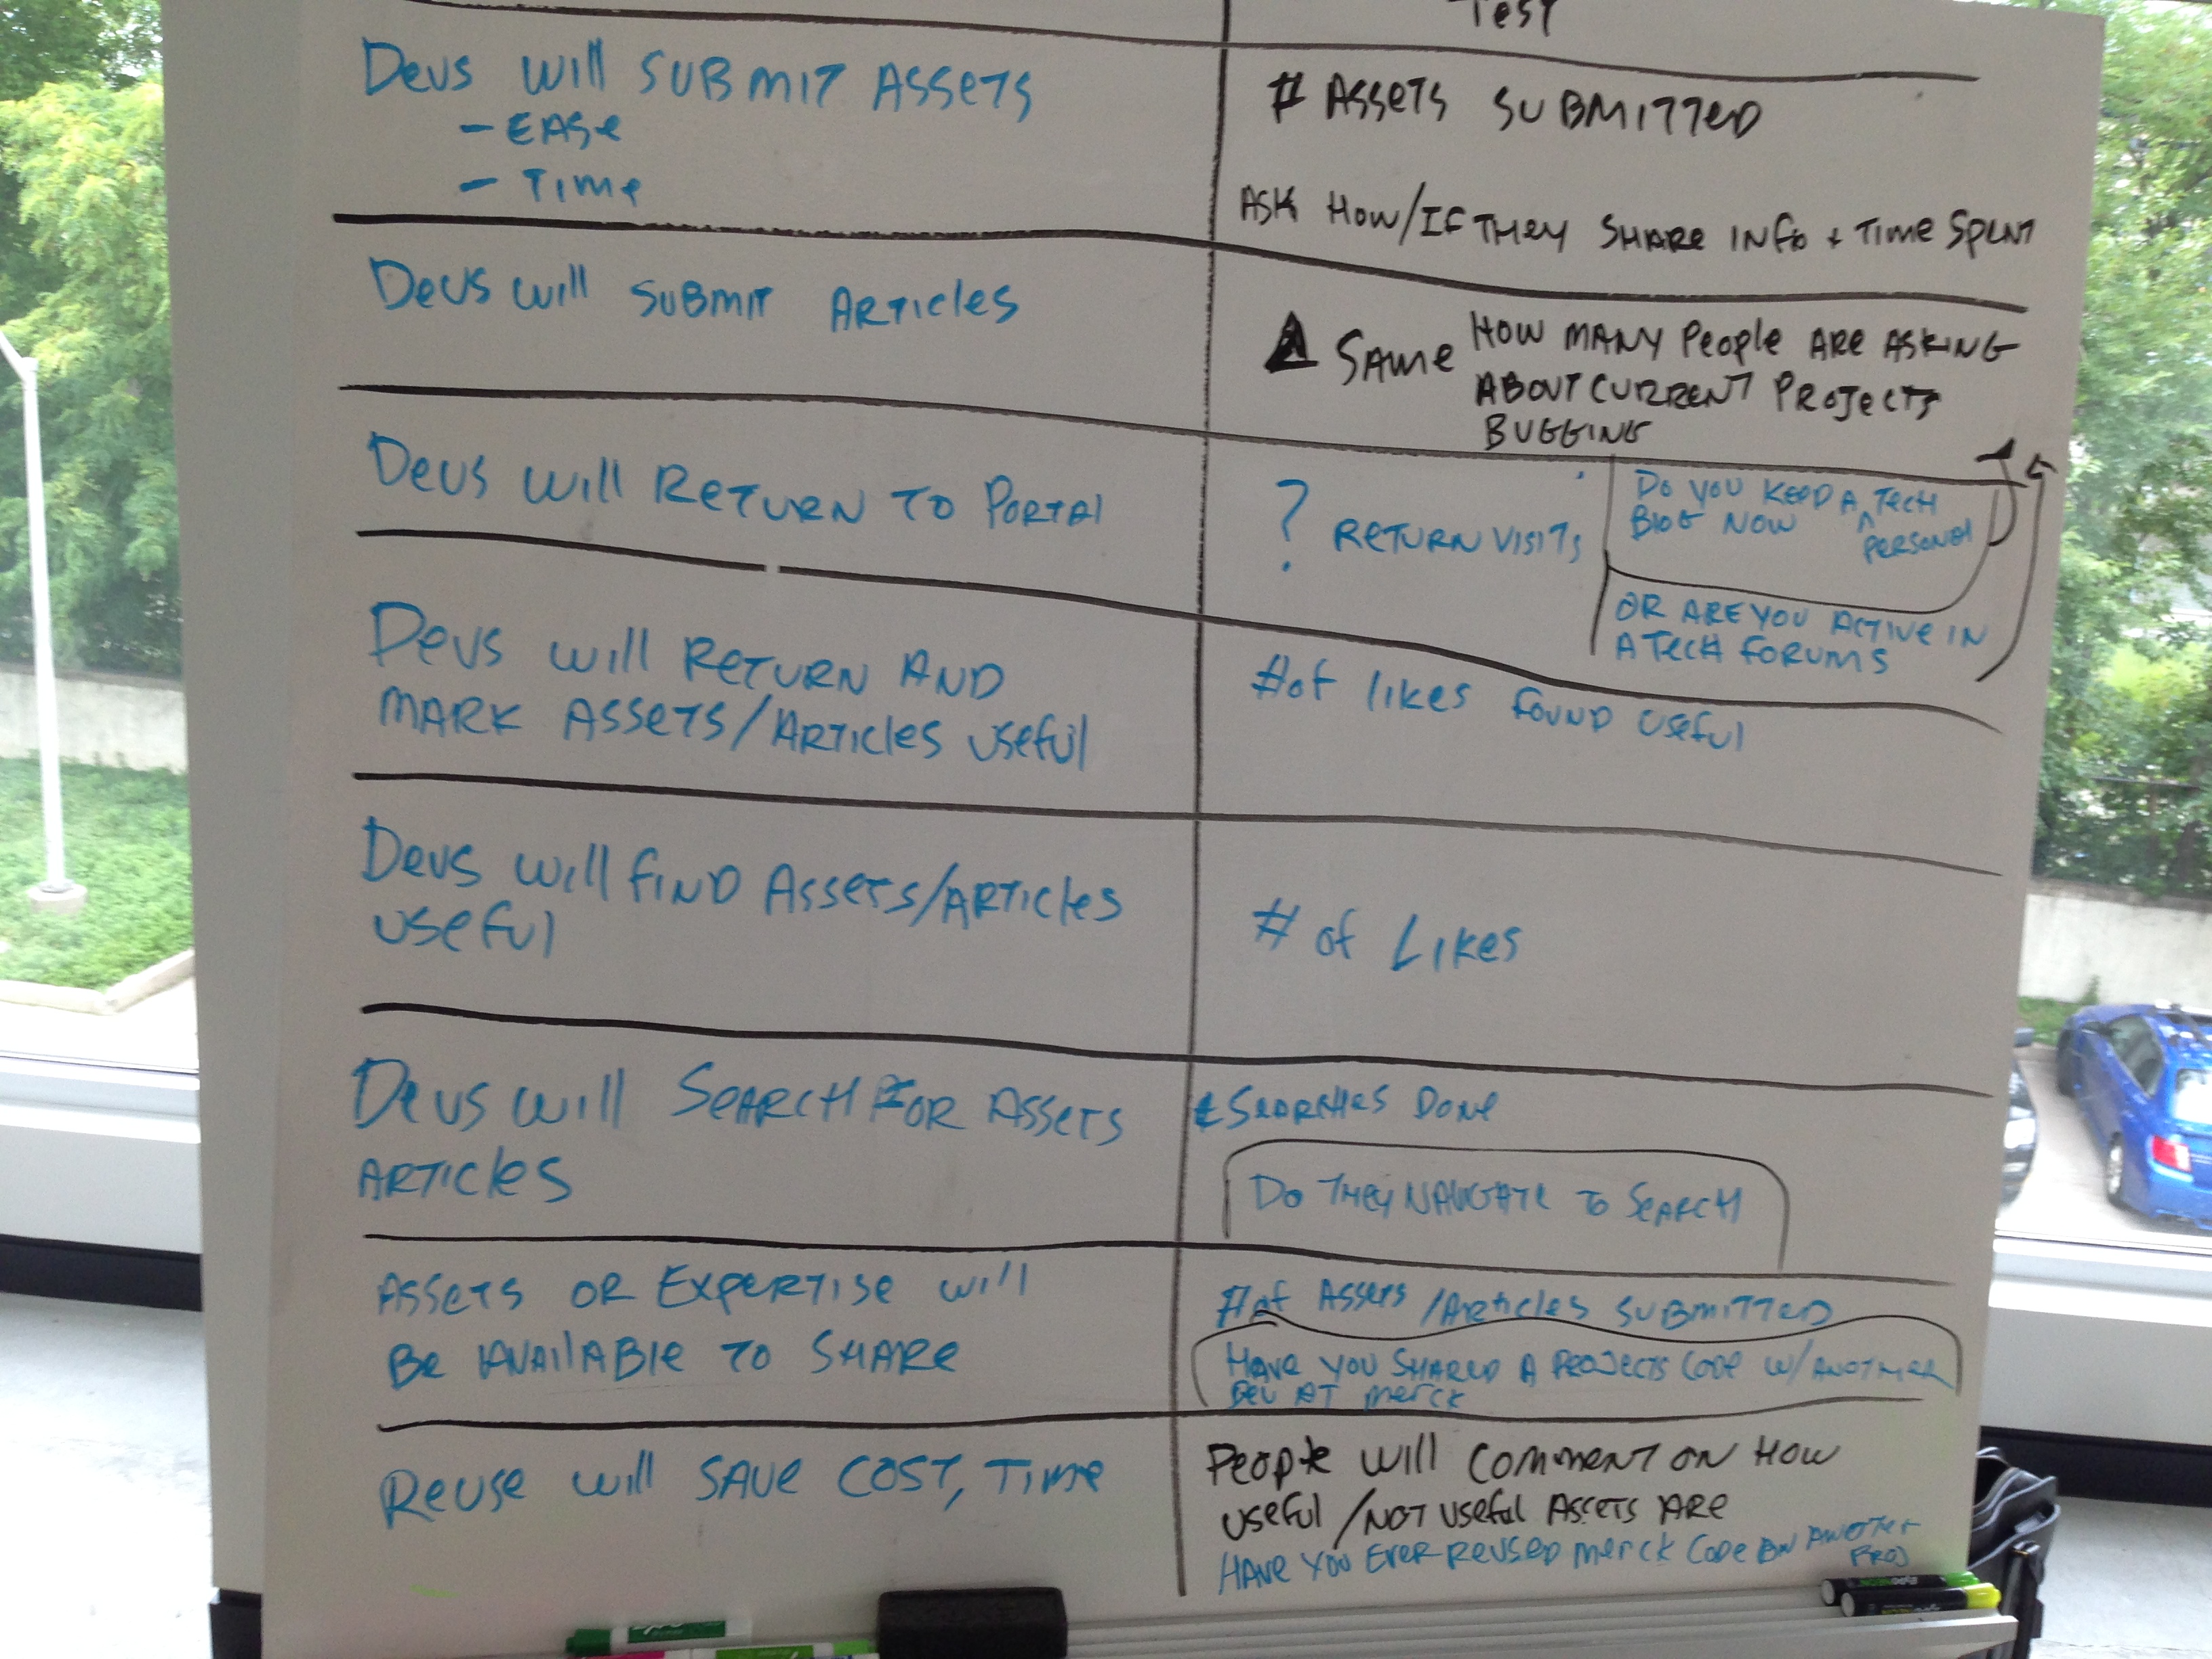 Test
Devs will submit assets
- Ease
- Time
# Assets submitted
Ask how/if they share info + time spent
Devs will submit articles
Same How many people are asking
about current projects
bugging
Devs will return to portal
? Return visits
Do you keep a ^ tech
blog now personal
or are you active in
a tech forums
Devs will return and
mark assets/articles useful
# of likes found useful
Devs will find assets/articles
useful
# of likes
Devs will search for assets
articles
Searches done
Do they navigate to search
Assets or expertise will
be available to share
# of assets/articles submitted
Have you shared a projects code w/another
dev at Merck
Reuse will save cost, time
People will comment on how
useful/not useful assets are
Have you ever reused Merck code on another
proj